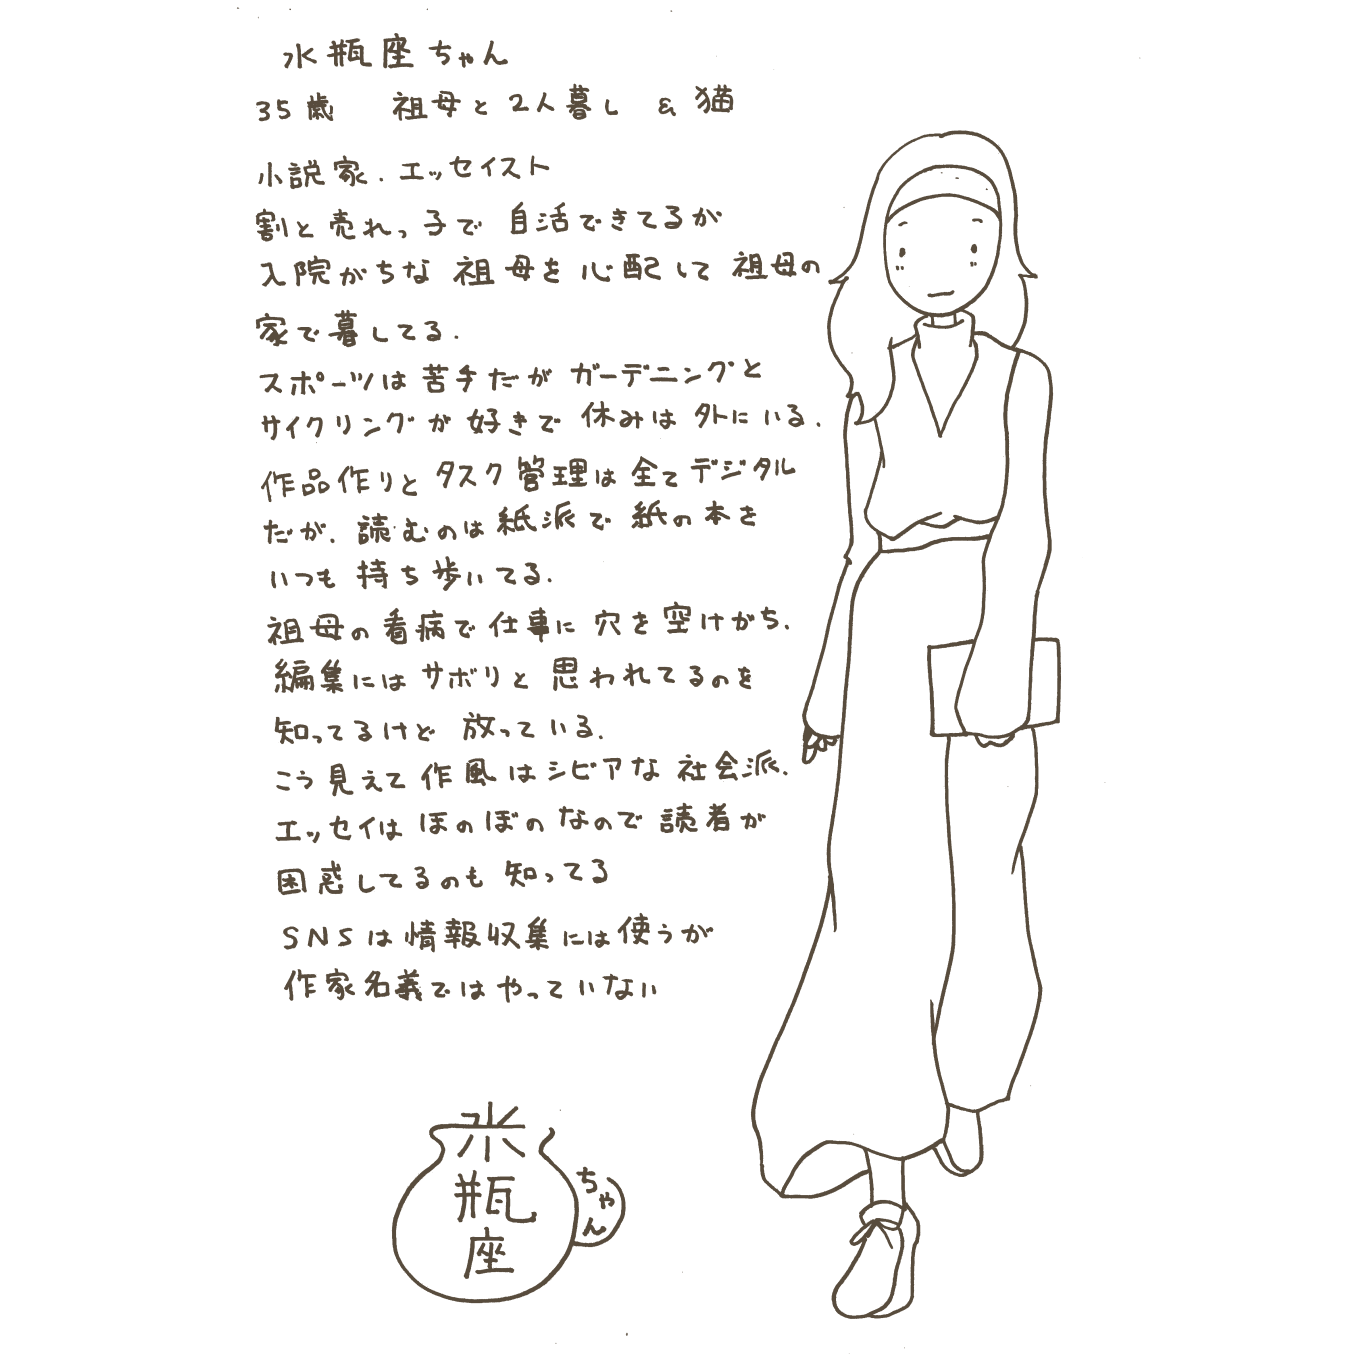 水瓶座ちゃん
35歳 祖母と2人暮し & 猫
小説家.エッセイスト
割と売れっ子で自活できてるが
入院がちな祖母を心配して祖母の
家で暮してる.
スポーツは苦手だがガーデニングと
サイクリングが好きで休みは外にいる.
作品作りとタスク管理は全てデジタル
だが.読むのは紙派で紙の本を
いつも持ち歩いてる.
祖母の看病で仕事に穴を空けがち.
編集にはサボリと思われてるのを
知ってるけど放っている.
こう見えて作風はシビアな社会派.
エッセイはほのぼのなので読者が
困惑してるのも知ってる
SNSは情報収集には使うが
作家名義ではやっていない
水瓶座
ちゃん